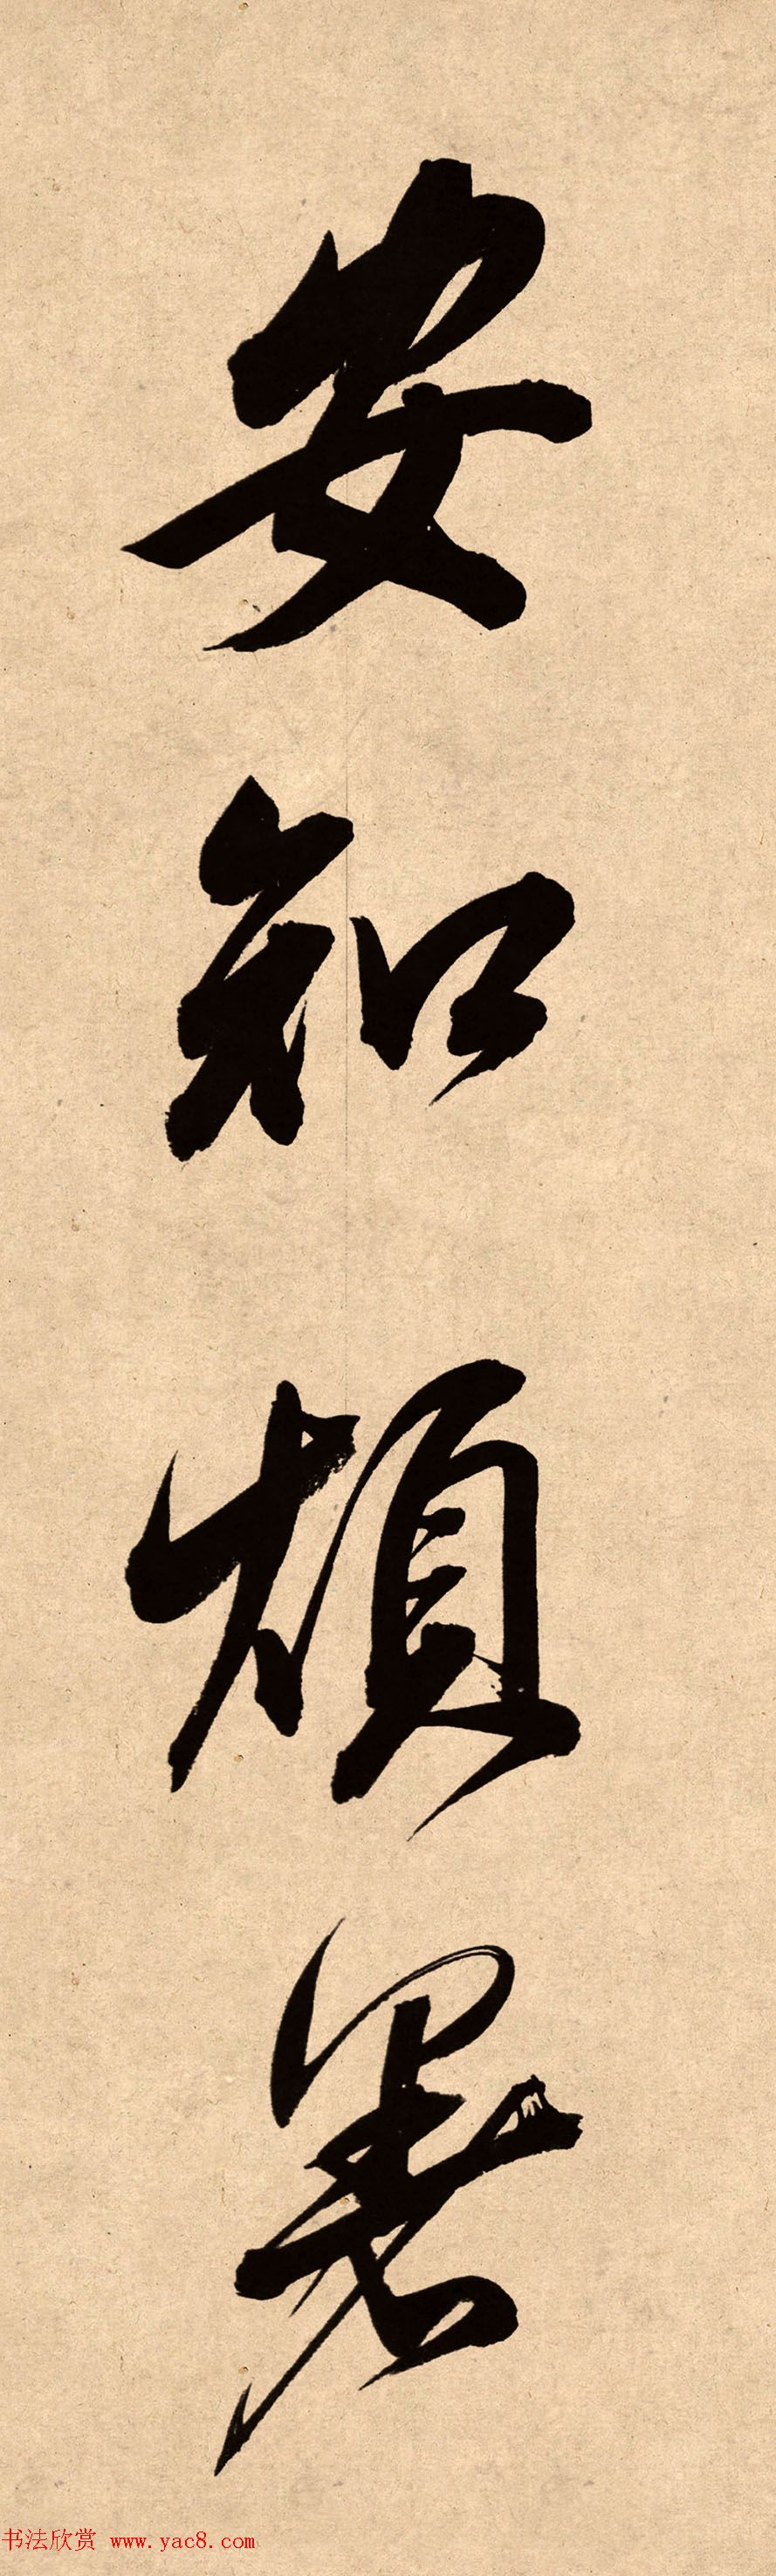 安知烦暑
书法欣赏 www.yac8.com